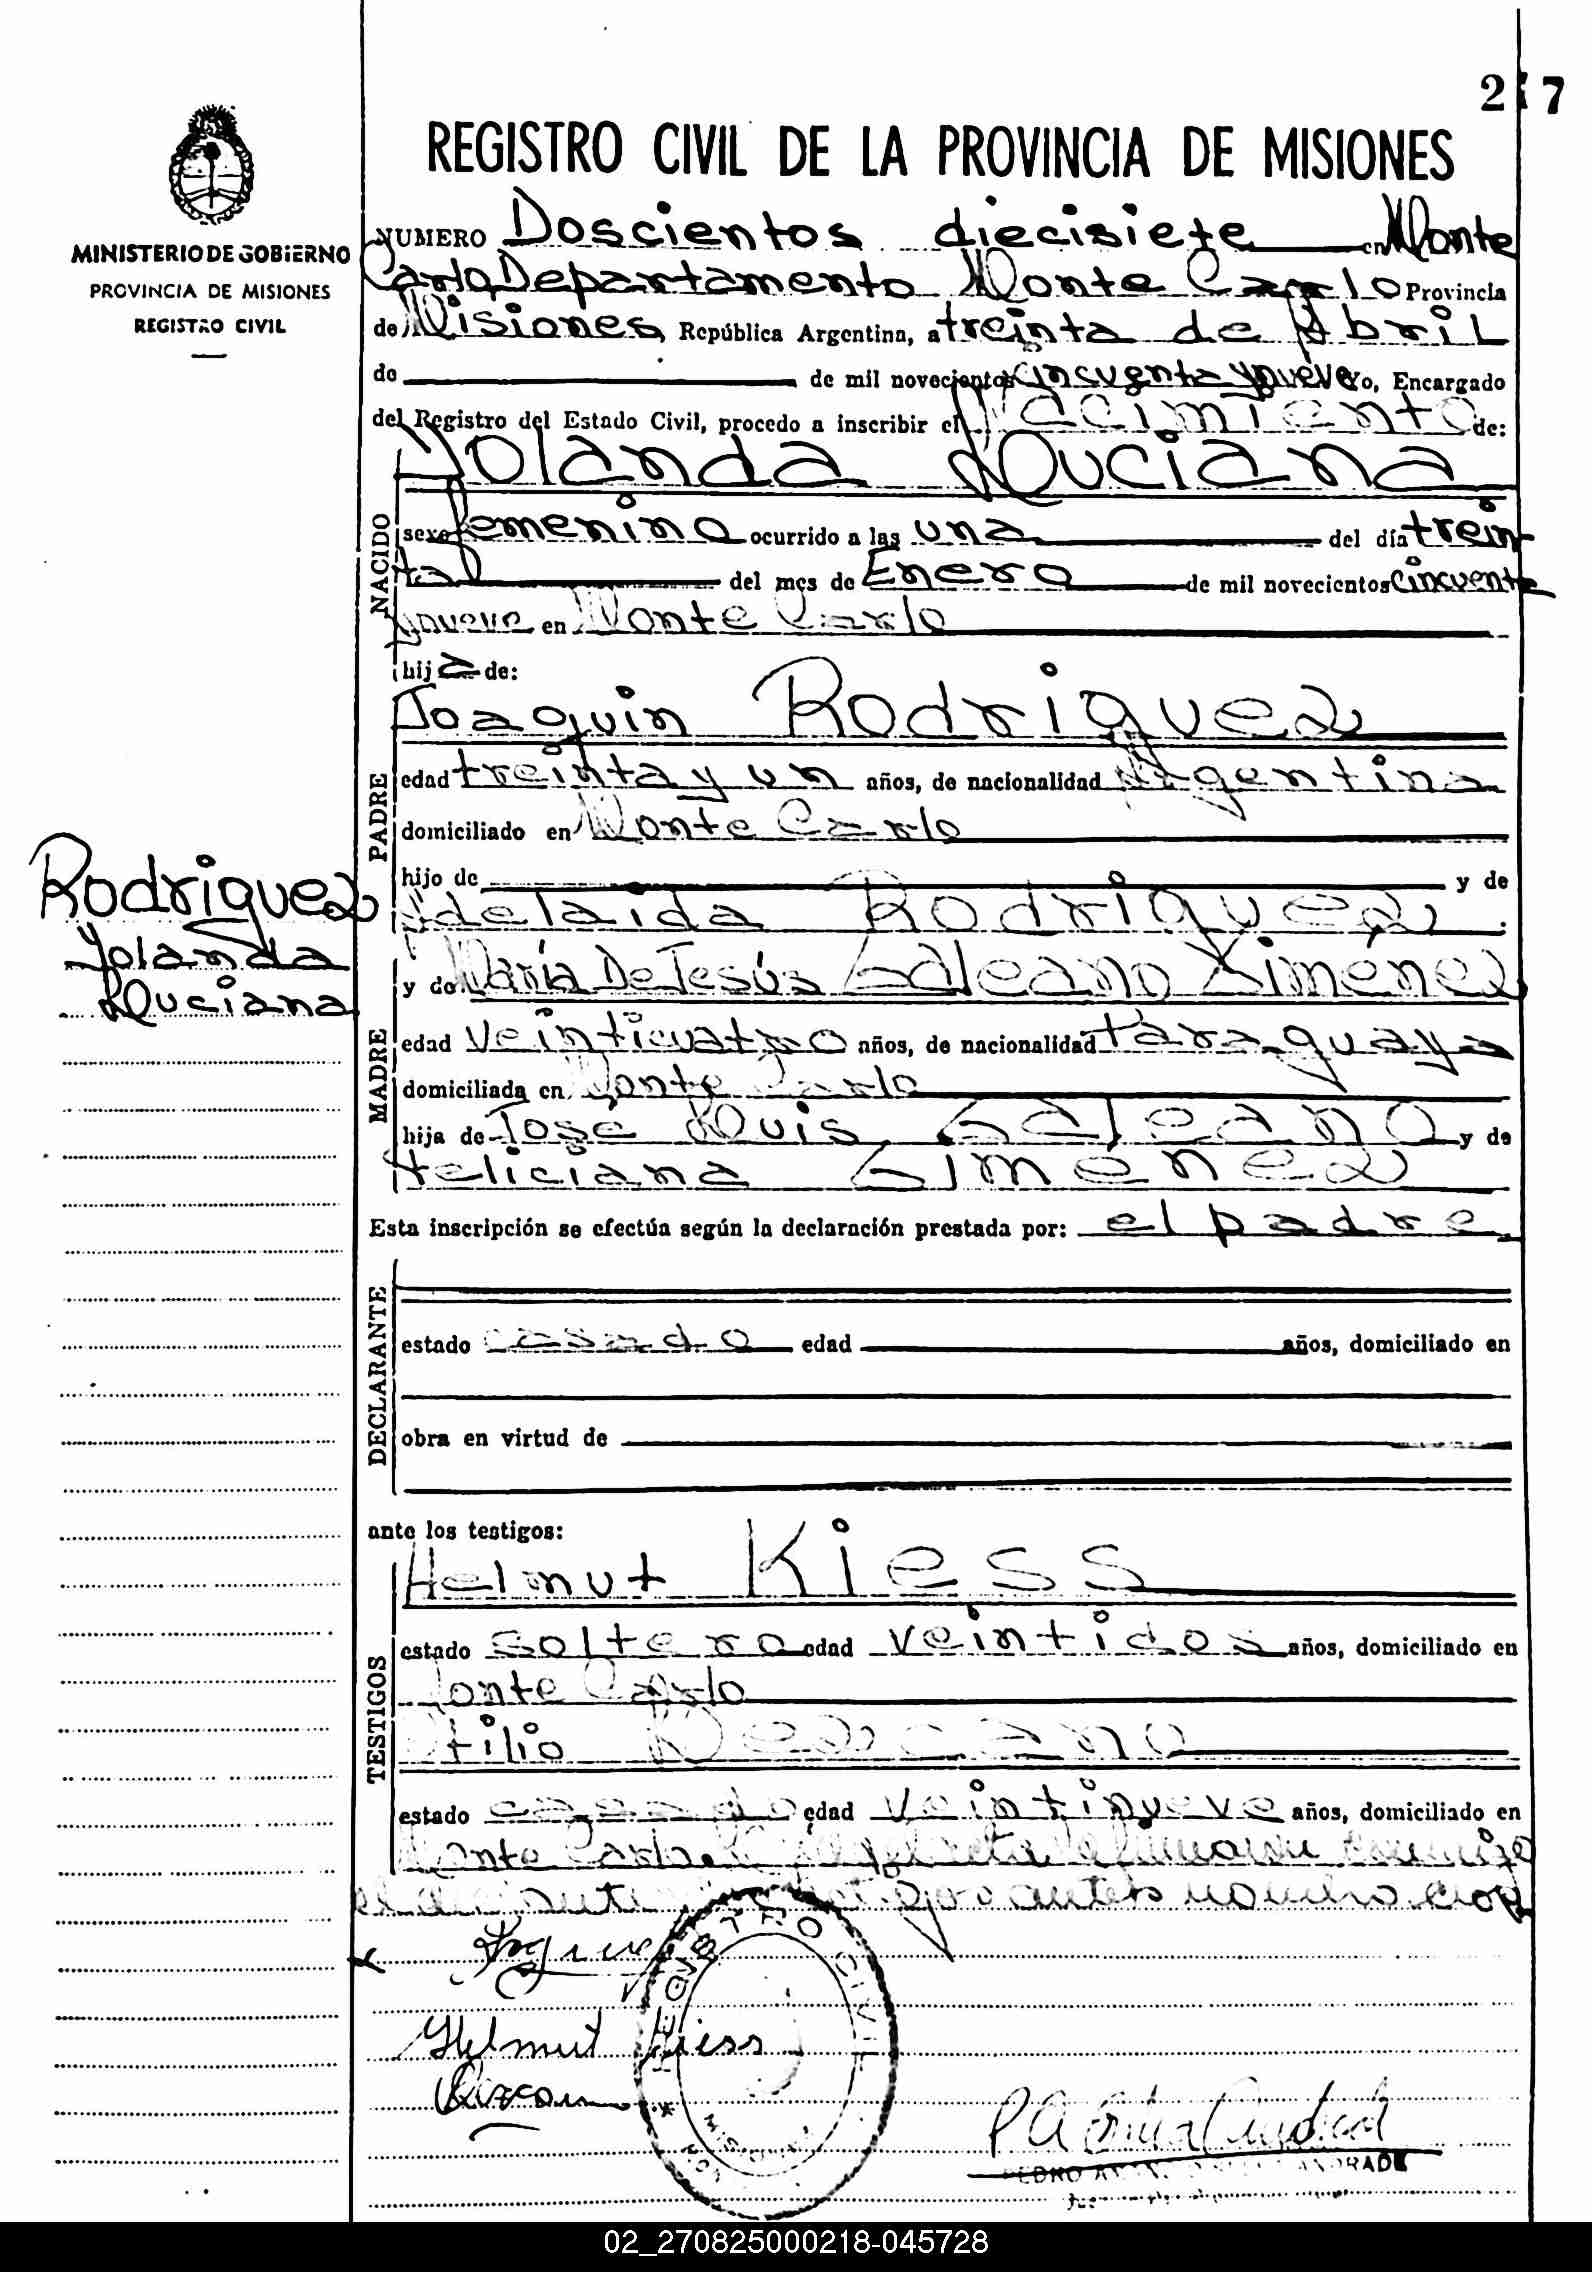 2 7
REGISTRO CIVIL DE LA PROVINCIA DE MISIONES
MINISTERIO DE GOBIERNO
PROVINCIA DE MISIONES
REGISTRO CIVIL
NUMERO Doscientos diecisiete en Monte
Carlo, Departamento Monte Carlo Provincia
de Misiones, República Argentina, a treinta de Abril
de de mil novecientos cincuenta y nueve Yo, Encargado
del Registro del Estado Civil, procedo a inscribir el Nacimiento de:
Yolanda Luciana
NACIDO
sexo femenino ocurrido a las una del día trein
ta del mes de Enero de mil novecientos cincuenta
y nueve en Monte Carlo
hija de:
Joaquin Rodriguez
PADRE
edad treinta y un años, de nacionalidad Argentina
domiciliado en Monte Carlo
hijo de y de
Adelaida Rodriguez
Rodriguez
Yolanda
Luciana
y de María De Jesús Galeano Ximenez
MADRE
edad veinticuatro años, de nacionalidad Paraguaya
domiciliada en Monte Carlo
hija de José Luis Galeano y de
Feliciana Gimenez
Esta inscripción se efectúa según la declaración prestada por: el padre
DECLARANTE
estado casado edad años, domiciliado en
obra en virtud de
ante los testigos:
Helmut Kiess
TESTIGOS
estado soltero edad veintidos años, domiciliado en
Monte Carlo
Atilio Lezcano
estado casado edad veintinueve años, domiciliado en
Monte Carlo. Leida el acta la firmaron conmigo
el declarante y los testigos antes nombrados
Helmut Kiess
REGISTRO CIVIL
MISIONES
PEDRO ANDRADE
02_270825000218-045728